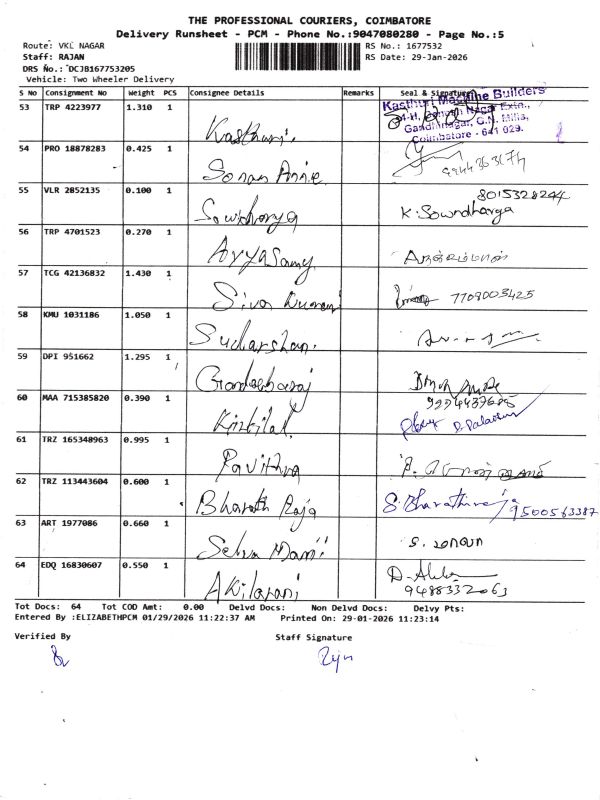 THE PROFESSIONAL COURIERS, COIMBATORE
Delivery Runsheet - PCM - Phone No.:9047080280 - Page No.:5
Route: VKL NAGAR
RS No.: 1677532
Staff: RAJAN
RS Date: 29-Jan-2026
DRS No.: DCJB167753205
Vehicle: Two Wheeler Delivery
S No Consignment No Weight PCS Consignee Details Remarks Seal & Signature
53 TRP 4223977 1.310 1 Kasthuri.
Kasthuri Machine Builders
Gandhinagar, G.N. Mills,
Coimbatore - 641 029.
54 PRO 18878283 0.425 1 Sonam Annie
55 VLR 2852135 0.100 1 Sowdharya 8015328244
K. Sowndharya
56 TRP 4701523 0.270 1 Aryasamy
57 TCG 42136832 1.430 1 Siva Kumar 7709003425
58 KMU 1031186 1.050 1 Sudharshan.
59 DPI 951662 1.295 1
60 MAA 715385820 0.390 1
61 TRZ 165348963 0.995 1 Pavithra
62 TRZ 113443604 0.600 1 Bharath Raja S. Bharathiraja 9500563387
63 ART 1977086 0.660 1 Selva Mani
64 EDQ 16830607 0.550 1 Akilarani
9488332063
Tot Docs: 64 Tot COD Amt: 0.00 Delvd Docs: Non Delvd Docs: Delvy Pts:
Entered By :ELIZABETHPCM 01/29/2026 11:22:37 AM Printed On: 29-01-2026 11:23:14
Verified By Staff Signature